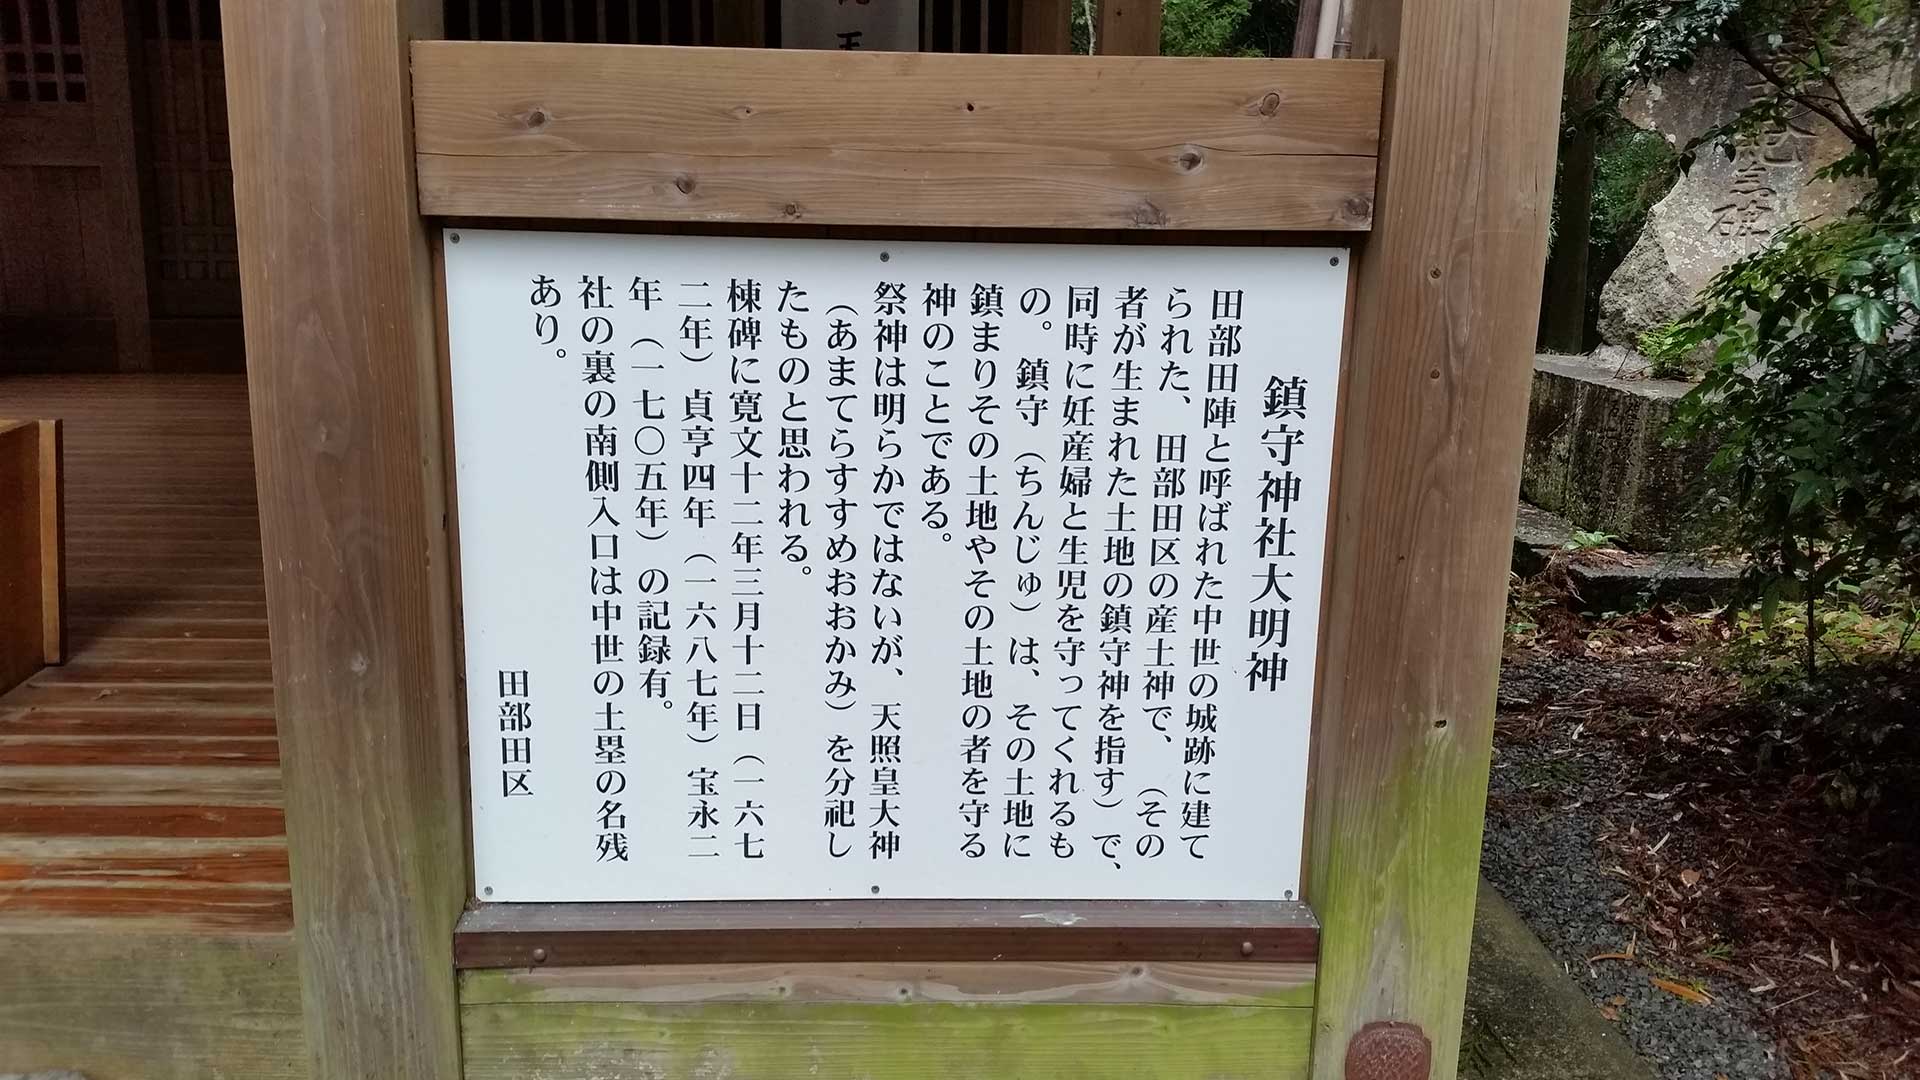 鎮守神社大明神
田部田陣と呼ばれた中世の城跡に建て
られた、田部田区の産土神で、（その
者が生まれた土地の鎮守神を指す）で、
同時に妊産婦と生児を守ってくれるも
の。鎮守（ちんじゅ）は、その土地に
鎮まりその土地やその土地の者を守る
神のことである。
祭神は明らかではないが、天照皇大神
（あまてらすすめおおかみ）を分祀し
たものと思われる。
棟碑に寛文十二年三月十二日（一六七
二年）貞亨四年（一六八七年）宝永二
年（一七〇五年）の記録有。
社の裏の南側入口は中世の土塁の名残
あり。
田部田区